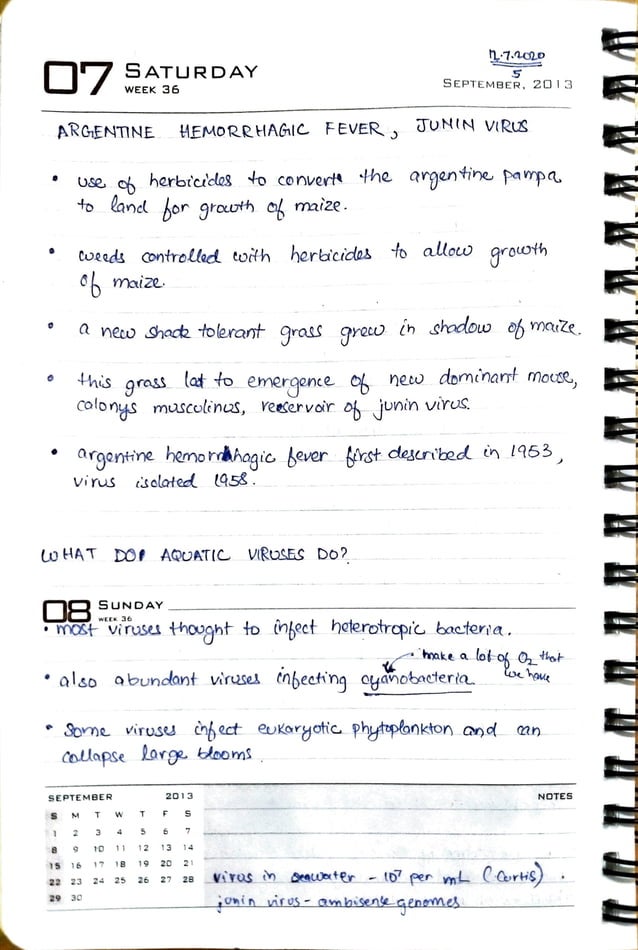 07 SATURDAY
WEEK 36
12.7.2020
5
SEPTEMBER, 2013
ARGENTINE HEMORRHAGIC FEVER, JUNIN VIRUS
• use of herbicides to convert the argentine pampa
to land for growth of maize.
• weeds controlled with herbicides to allow growth
of maize.
• a new shade tolerant grass grew in shadow of maize.
• this grass lat to emergence of new dominant mouse,
colonys musculinus, reservoir of junin virus.
• argentine hemorrhagic fever first described in 1953,
virus isolated 1958.
WHAT DO AQUATIC VIRUSES DO?
08 SUNDAY
WEEK 36
• most viruses thought to infect heterotropic bacteria.
• make a lot of O2 that
we have
• also abundant viruses infecting cyanobacteria.
• Some viruses infect eukaryotic phytoplankton and can
collapse large blooms.
SEPTEMBER 2013
S M T W T F S
1 2 3 4 5 6 7
8 9 10 11 12 13 14
15 16 17 18 19 20 21
22 23 24 25 26 27 28
29 30
NOTES
virus in seawater - 10⁷ per mL (Curtis).
junin virus - ambisense genomes